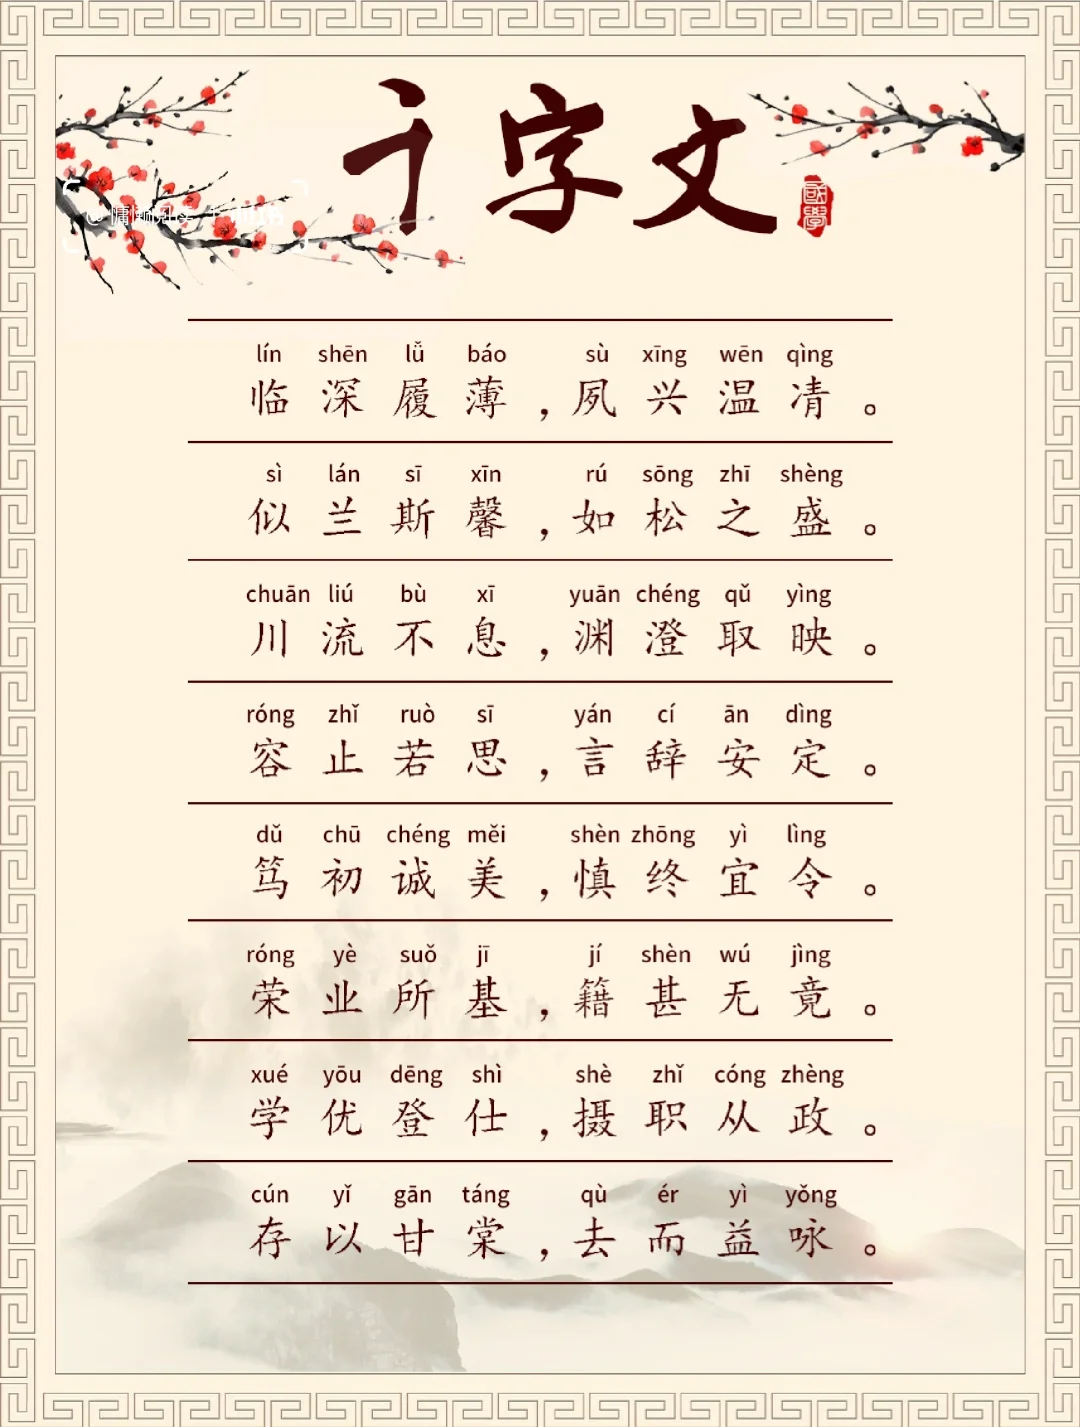 千字文
國學
lín shēn lǚ báo sù xīng wēn qìng
临深履薄，夙兴温凊。
sì lán sī xīn rú sōng zhī shèng
似兰斯馨，如松之盛。
chuān liú bù xī yuān chéng qǔ yìng
川流不息，渊澄取映。
róng zhǐ ruò sī yán cí ān dìng
容止若思，言辞安定。
dǔ chū chéng měi shèn zhōng yì lìng
笃初诚美，慎终宜令。
róng yè suǒ jī jí shèn wú jìng
荣业所基，籍甚无竟。
xué yōu dēng shì shè zhǐ cóng zhèng
学优登仕，摄职从政。
cún yǐ gān táng qù ér yì yǒng
存以甘棠，去而益咏。